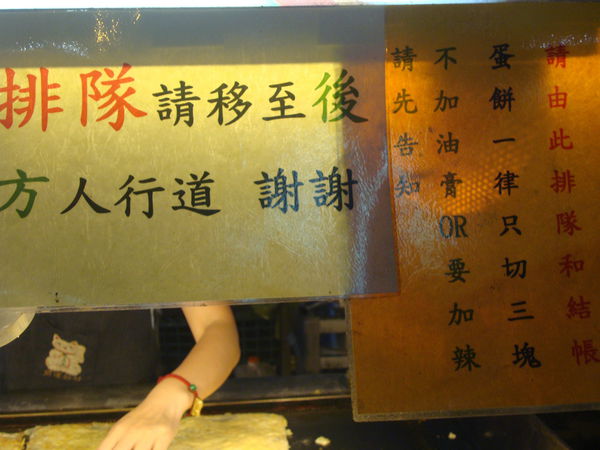 排隊請移至後
方人行道 謝謝
請由此排隊和結帳
蛋餅一律只切三塊
不加油膏OR要加辣
請先告知